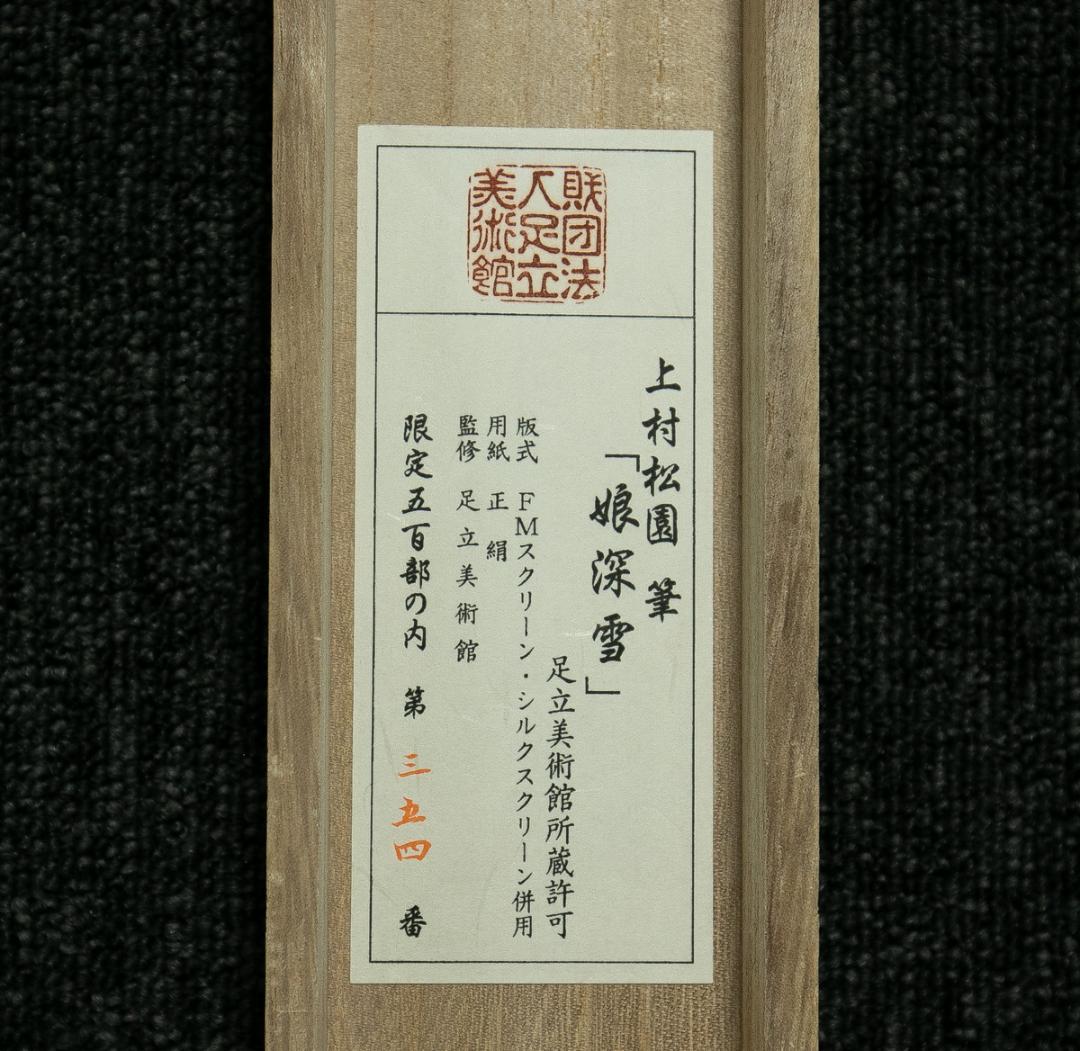 財団法
人足立
美術館
上村松園 筆
「娘深雪」
足立美術館所蔵許可
版式 FMスクリーン・シルクスクリーン併用
用紙 正絹
監修 足立美術館
限定五百部の内 第 三五四 番